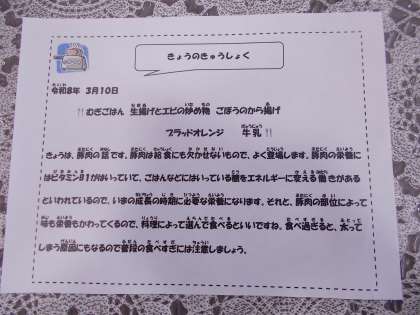 きょうのきゅうしょく
令和8年 3月10日
むぎごはん 生揚げとエビの炒め物 ごぼうのから揚げ
ブラッドオレンジ 牛乳
きょうは、豚肉の話です。豚肉は給食にも欠かせないもので、よく登場します。豚肉の栄養に
はビタミンB1がはいっていて、ごはんなどにはいっている糖をエネルギーに変える働きがある
といわれているので、いまの成長の時期に必要な栄養になります。それと、豚肉の部位によって
味も栄養もかわってくるので、料理によって選んで食べるといいですね。食べ過ぎると、太って
しまう原因にもなるので普段の食べすぎには注意しましょう。